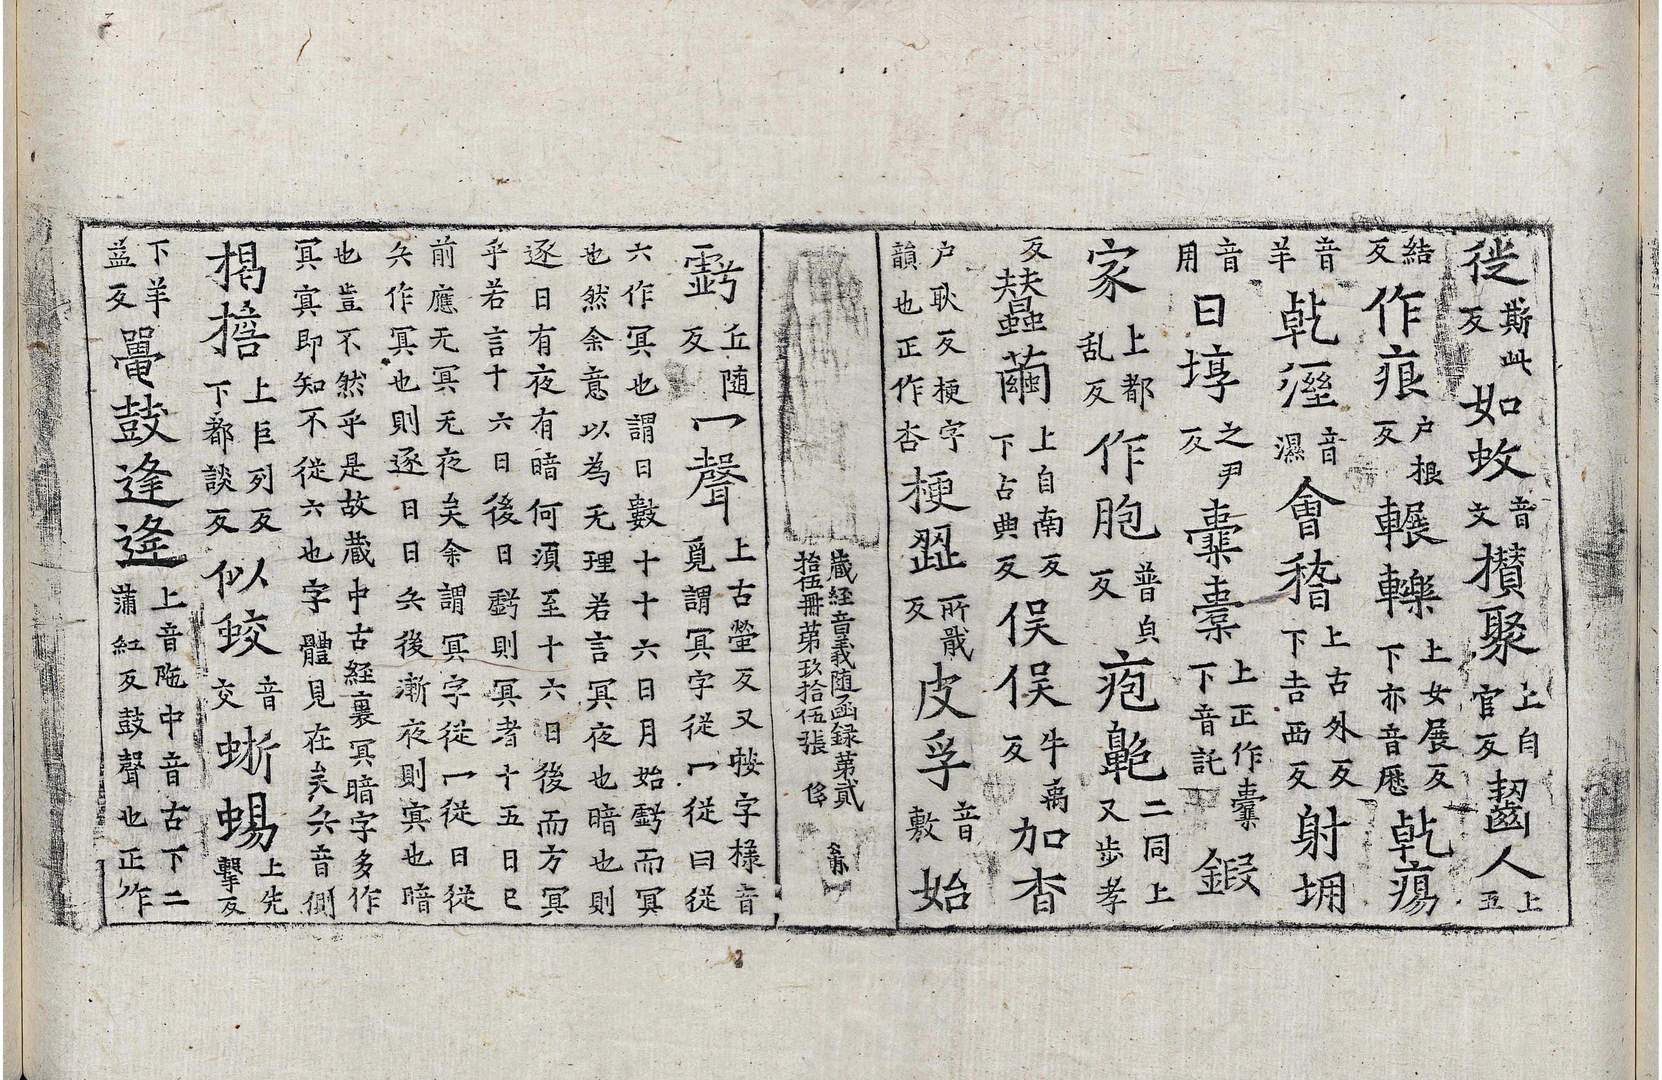 徙斯此反如蚊音文攢聚上自官反齧人上五
結反作痕户根反輾轢上女展反下亦音歷乹瘍
音羊乹溼音濕會稽上古外反下吉西反射堋
音用曰埻之尹反橐橐上正作橐下音託鍜
家上都乱反作胞普皃反疱皰二同上又步孝
反蠶繭上自南反下古典反俣俣牛禹反加杏
户耿反梗字韻也正作杏梗澀所戢反皮孚音敷始
藏經音義随函録第貳拾伍冊第玖拾伍張
虧丘随反冖聲上古螢反又㡌字樣音覓謂冥字從冖從日從
六作冥也謂日數十十六日月始虧而冥
也然余意以為无理若言冥夜也暗也則
逐日有夜有暗何須至十六日後而方冥
乎若言十六日後日虧則冥者十五日已
前應无冥无夜矣余謂冥字從冖從日從
兵作冥也則逐日日兵後漸夜則冥也暗
也豈不然乎是故藏中古經裏冥暗字多作
冥㝠即知不從六也字體見在矣兵音側
揭擔上巨列反下都談反似蛟音交蜥蜴上先擊反
下羊益反鼉鼓逢逢上音陁中音古下二蒲紅反鼓聲也正作